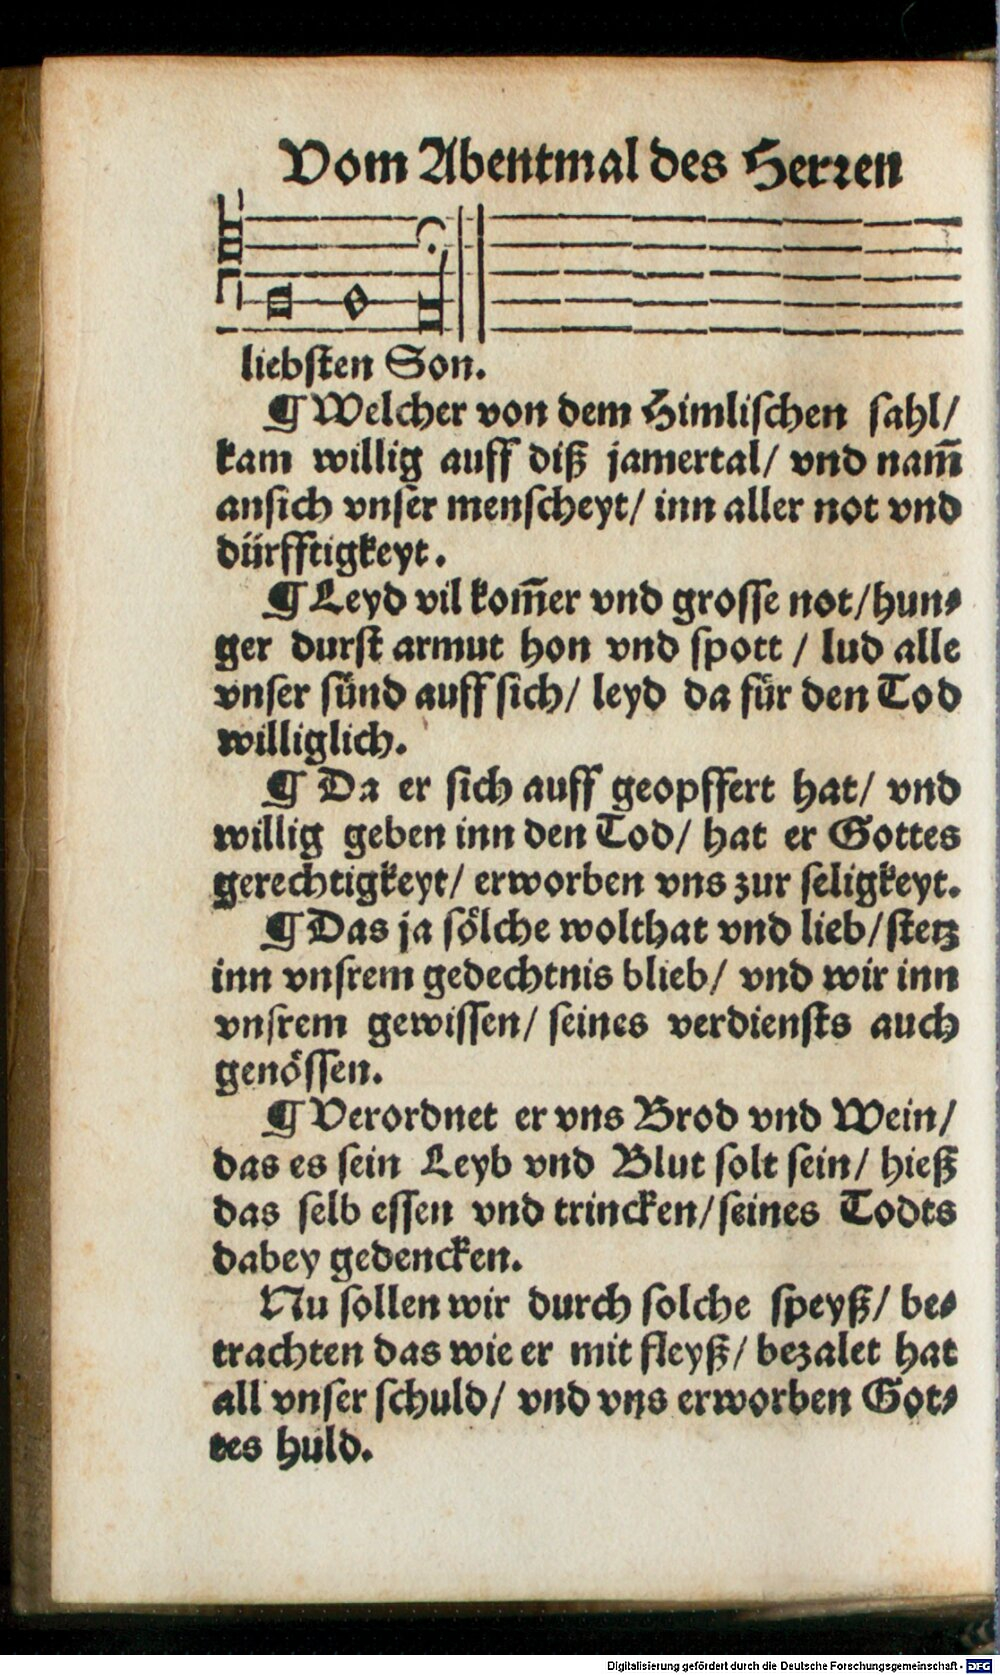 Vom Abentmal des Herꝛen
liebsten Son.
¶ Welcher von dem Himlischen sahl/
kam willig auff diß jamertal/ vnd nam̄
ansich vnser menscheyt/ inn aller not vnd
dürfftigkeyt.
¶ Leyd vil kom̄er vnd grosse not/ hun⸗
ger durst armut hon vnd spott / lud alle
vnser sünd auff sich/ leyd da für den Tod
williglich.
¶ Da er sich auff geopffert hat/ vnd
willig geben inn den Tod/ hat er Gottes
gerechtigkeyt/ erworben vns zur seligkeyt.
¶ Das ja sölche wolthat vnd lieb/ stetz
inn vnsrem gedechtnis blieb/ vnd wir inn
vnsrem gewissen/ seines verdiensts auch
genössen.
¶ Verordnet er vns Brod vnd Wein/
das es sein Leyb vnd Blut solt sein/ hieß
das selb essen vnd trincken/ seines Todts
dabey gedencken.
Nu sollen wir durch solche speyß/ be⸗
trachten das wie er mit fleyß/ bezalet hat
all vnser schuld/ vnd vns erworben Got⸗
tes huld.
Digitalisierung gefördert durch die Deutsche Forschungsgemeinschaft - DFG